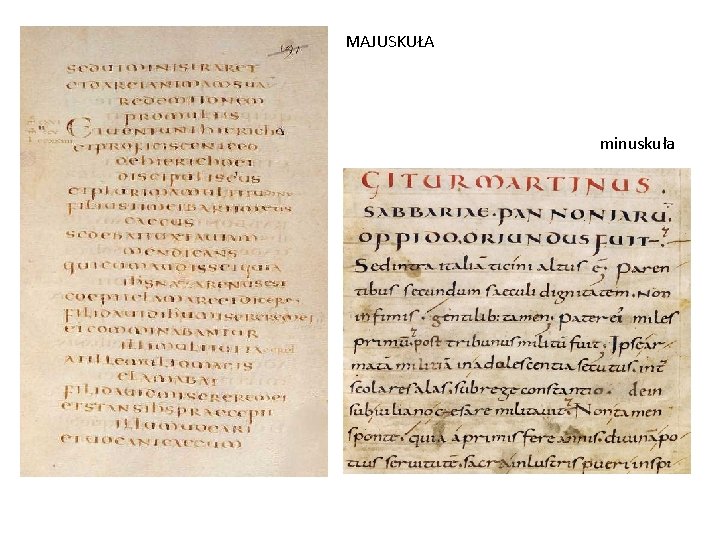 MAJUSKUŁA
minuskuła
SEDUTMINISTRARET
ETDARETANIMAMSUA
REDEMTIONEM
PROMULTIS
ETUENIUNTHIERICHO
ETPROFICISCENTEEO
DEHIERICHOET
DISCIPULISEIUS
ETPLURIMAMULTITUDINE
FILIUSTIMEIBARTIMEUS
CAECUS
SEDEBATIUXTAUIAM
MENDICANS
QUICUMAUDISSETQUIA
COEPITCLAMAREETDICERE
FILIDAUIDIHUMISEREREMEI
ETCOMMINABANTUR
ATILLEMULTOMAGIS
CLAMABAT
FILIDAUIDMISEREREMEI
ETSTANSIHSPRAECEPIT
ILLUMUOCARI
ETUOCANTCAECUM
GITUR MARTINUS
SABBARIAE. PANNONIARU.
OPPIDO. ORIUNDUS FUIT
Sed intra italiā ticini altus ē. Paren
tibus secundum saeculi dignitatem. Non
infimis. gentilib: tamen. Pater ei miles
primū. post tribunus militū fuit. Ipse ar
matā militiā in adolescentia secutus. int
scolares alas. sub rege constantio. dein
sub iuliano cesare militauit. Non tamen
sponte. quia a primis fere annis. diuinā po
tius seruitutē. sacra inlustris pueri inspi